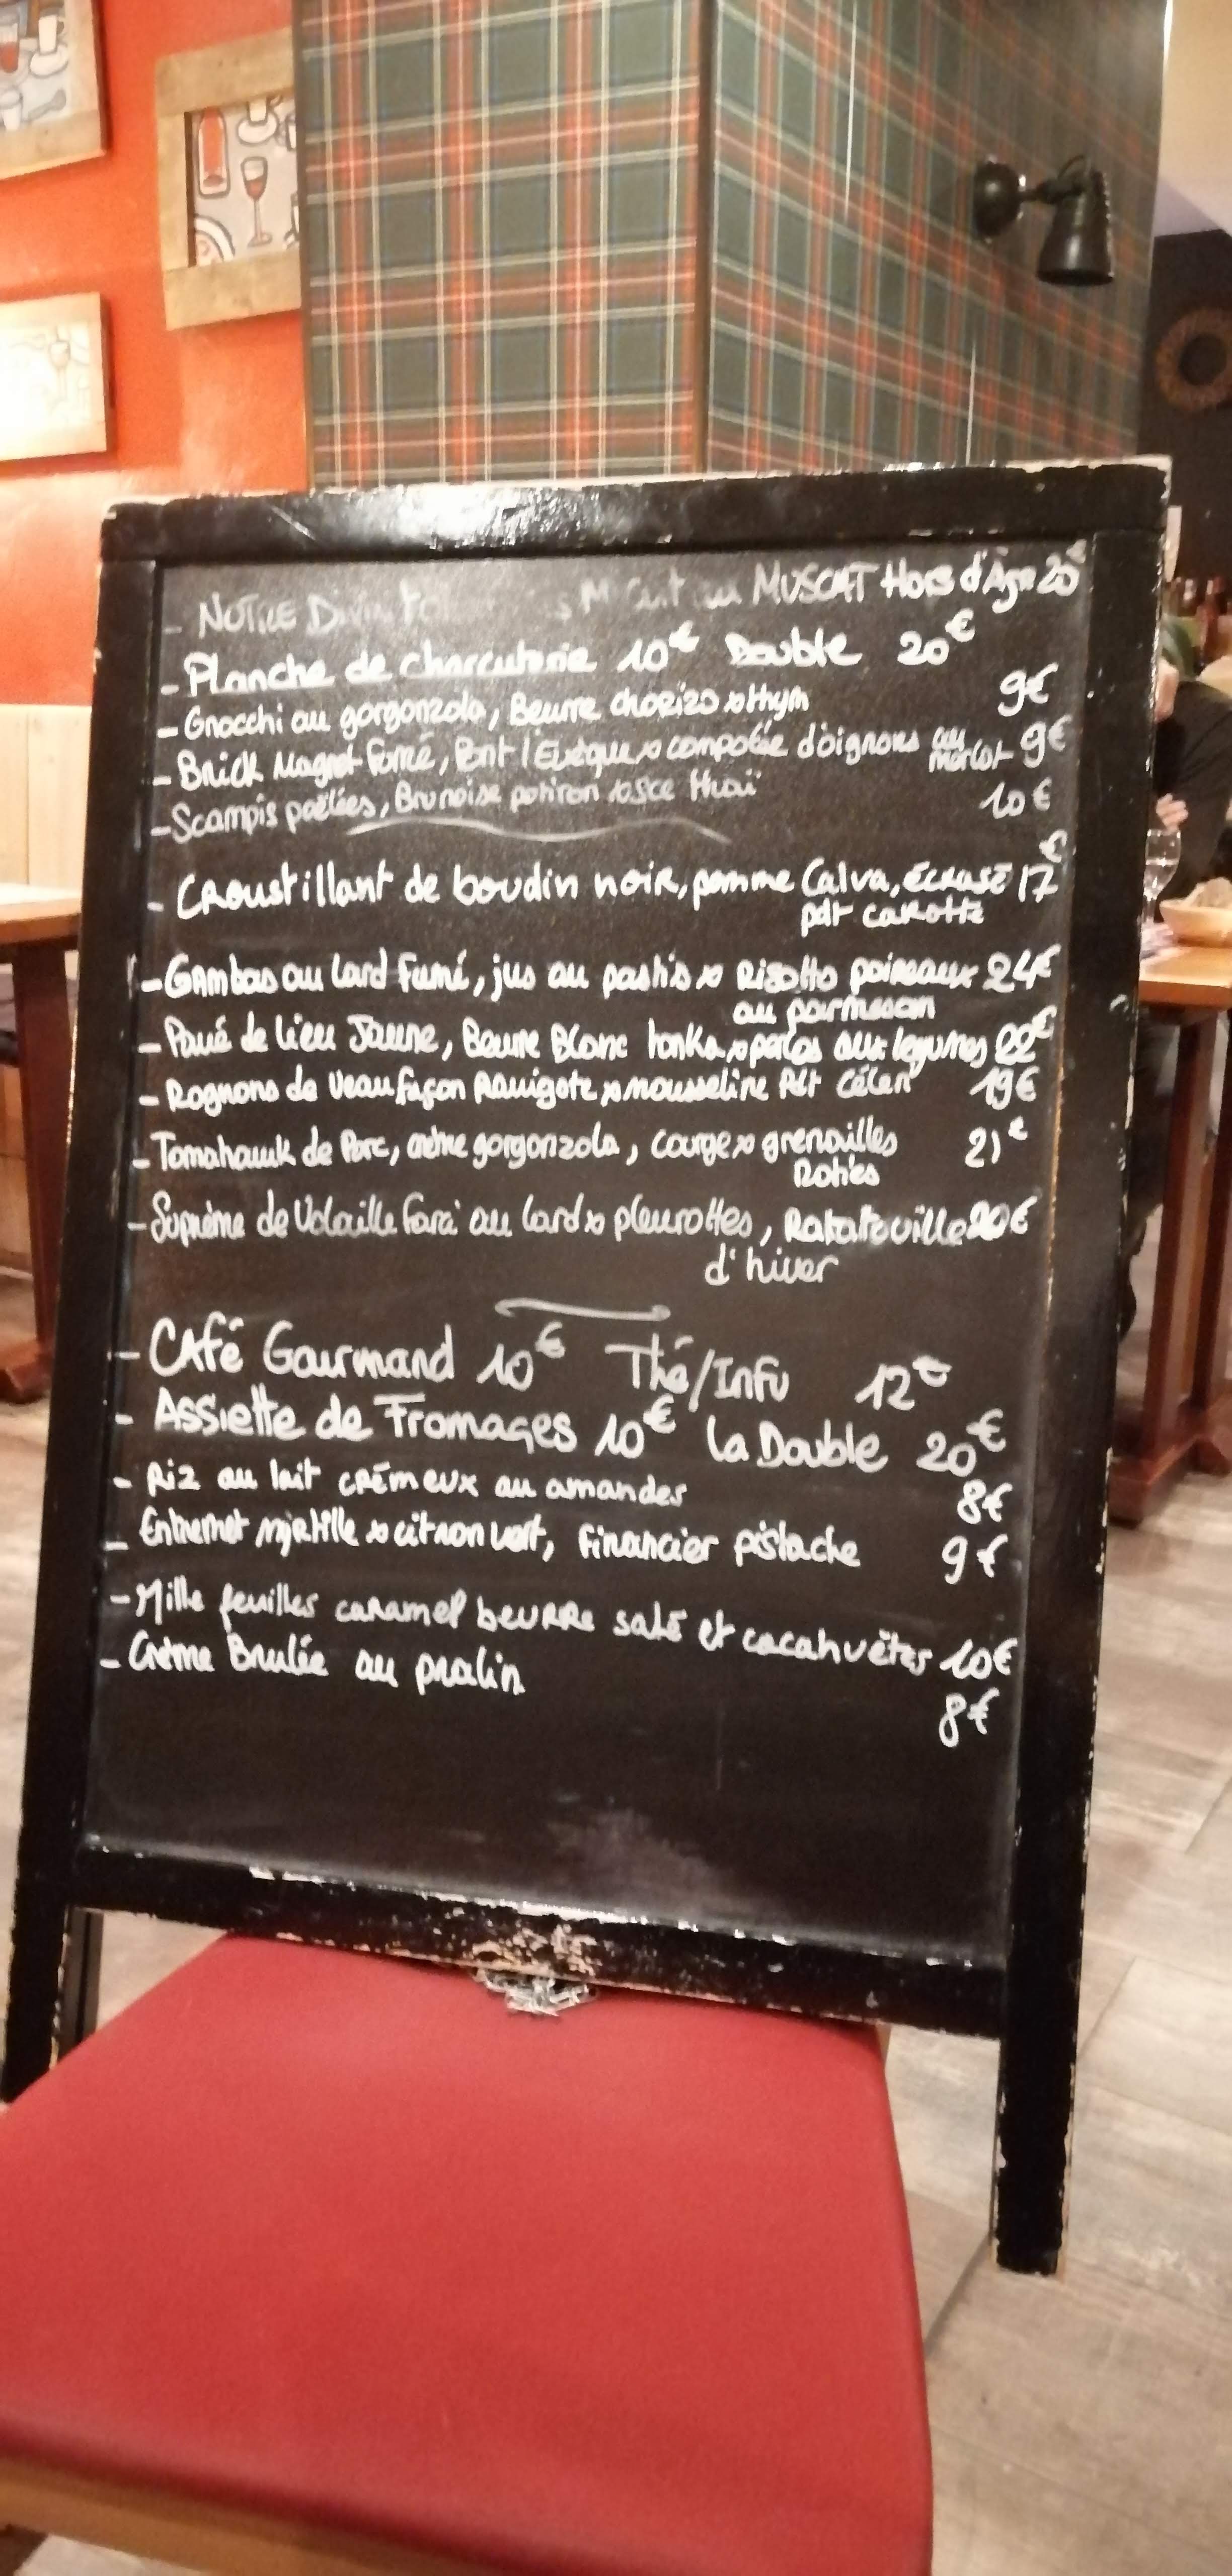 - NOTRE MUSCAT HORS d'Âge 20€
- Planche de charcuterie 10€ Double 20€
- Gnocchi au gorgonzola, Beurre chorizo & thym 9€
- Brick Magret Fumé, Pont l'Evêque & compotée d'oignons au merlot 9€
- Scampis poêlées, Brunoise potiron & sce thaï 10€
- Croustillant de boudin noir, pomme Calva, Écrasé 17€
pdt carotte
- Gambas au lard Fumé, jus au pastis & Risotto poireaux 24€
au parmesan
- Pavé de lieu Jaune, Beurre Blanc tonka & perles aux legumes 22€
- Rognons de veau façon Ravigote & mousseline Pdt Céleri 19€
- Tomahawk de Porc, crème gorgonzola, courge & grenailles 21€
Roties
- Suprème de Volaille Farci au lard & pleurottes, Ratatouille 20€
d'hiver
- CAfé Gourmand 10€ Thé/Infu 12€
- Assiette de Fromages 10€ La Double 20€
- Riz au lait crémeux au amandes 8€
- Entremet myrtille & citron vert, financier pistache 9€
- Mille feuilles caramel beurre salé et cacahuètes 10€
- Crème Brulée au pralin 8€